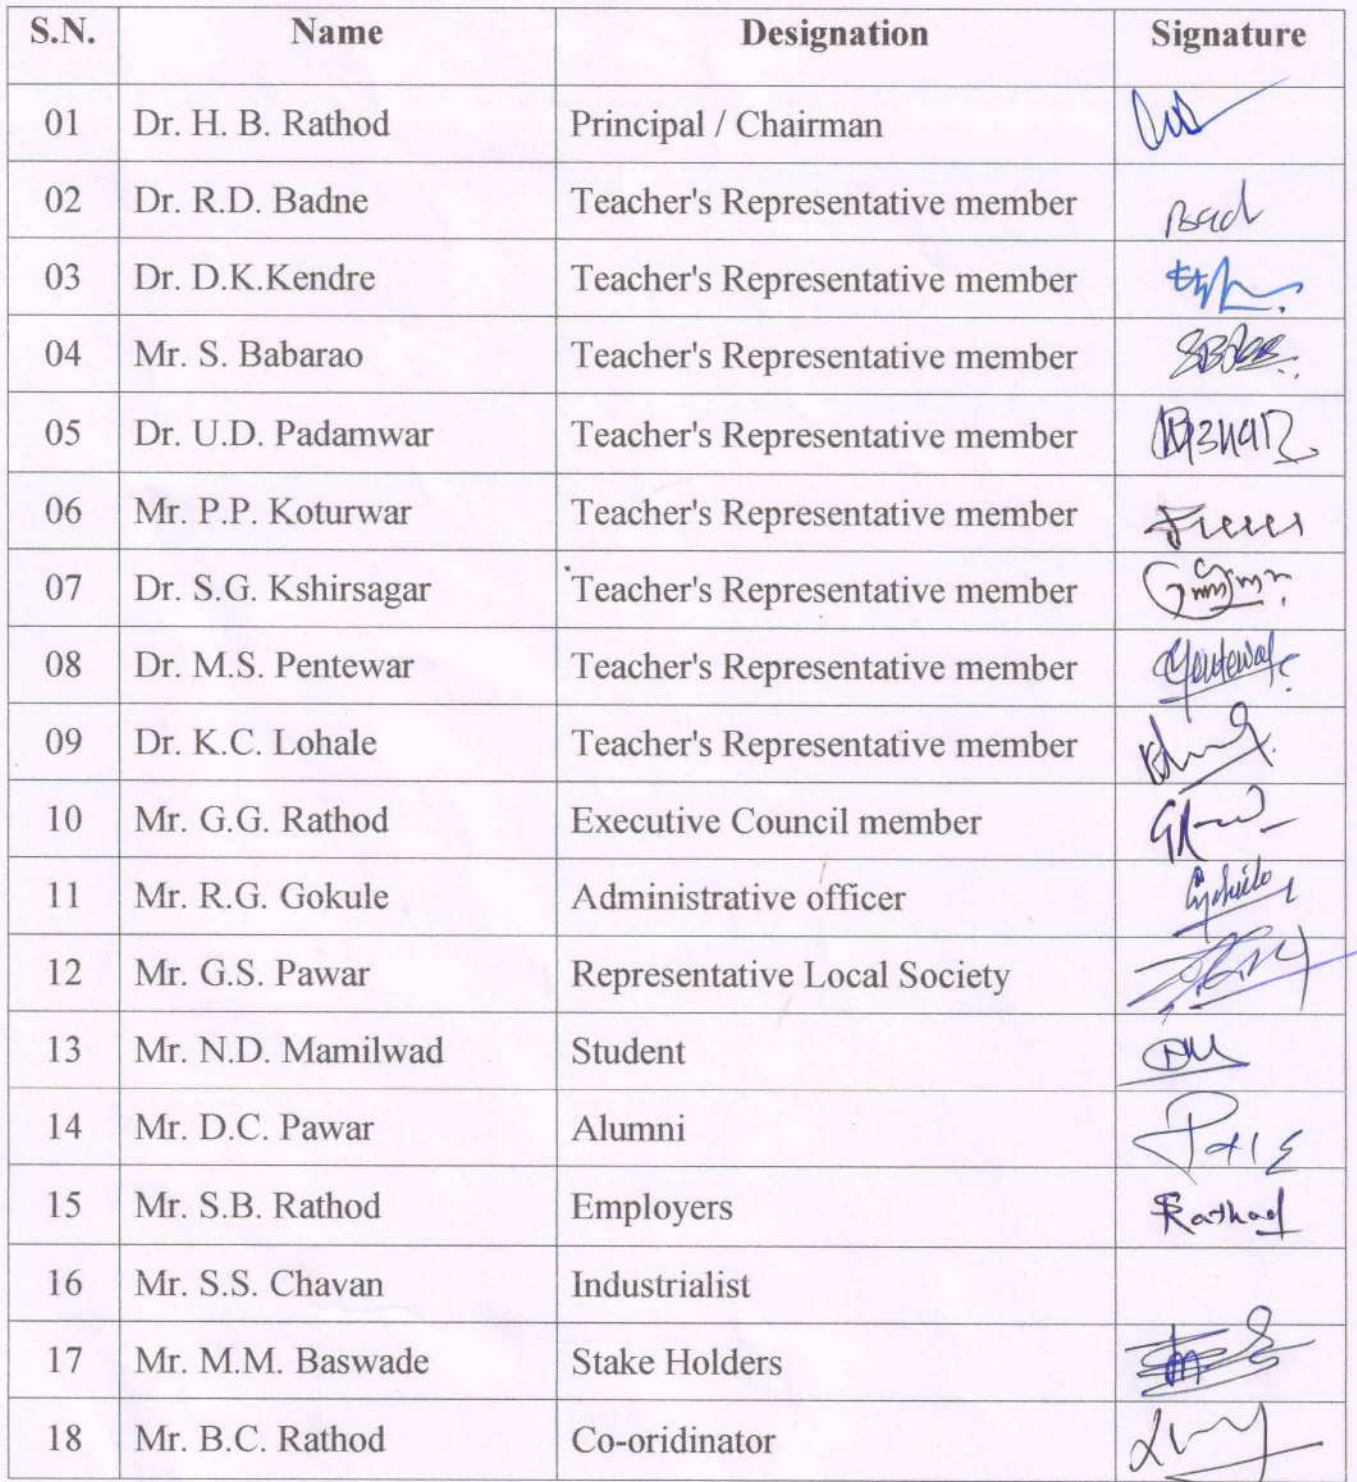 S.N. Name Designation Signature
01 Dr. H. B. Rathod Principal / Chairman
02 Dr. R.D. Badne Teacher's Representative member
03 Dr. D.K.Kendre Teacher's Representative member
04 Mr. S. Babarao Teacher's Representative member
05 Dr. U.D. Padamwar Teacher's Representative member
06 Mr. P.P. Koturwar Teacher's Representative member
07 Dr. S.G. Kshirsagar Teacher's Representative member
08 Dr. M.S. Pentewar Teacher's Representative member
09 Dr. K.C. Lohale Teacher's Representative member
10 Mr. G.G. Rathod Executive Council member
11 Mr. R.G. Gokule Administrative officer
12 Mr. G.S. Pawar Representative Local Society
13 Mr. N.D. Mamilwad Student
14 Mr. D.C. Pawar Alumni
15 Mr. S.B. Rathod Employers SRathod
16 Mr. S.S. Chavan Industrialist
17 Mr. M.M. Baswade Stake Holders
18 Mr. B.C. Rathod Co-oridinator